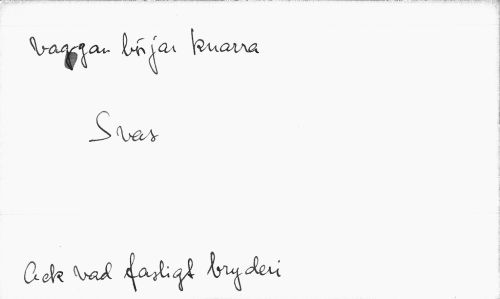 Vaggan börjar knarra
Svar
Ack vad fasligt bryderi